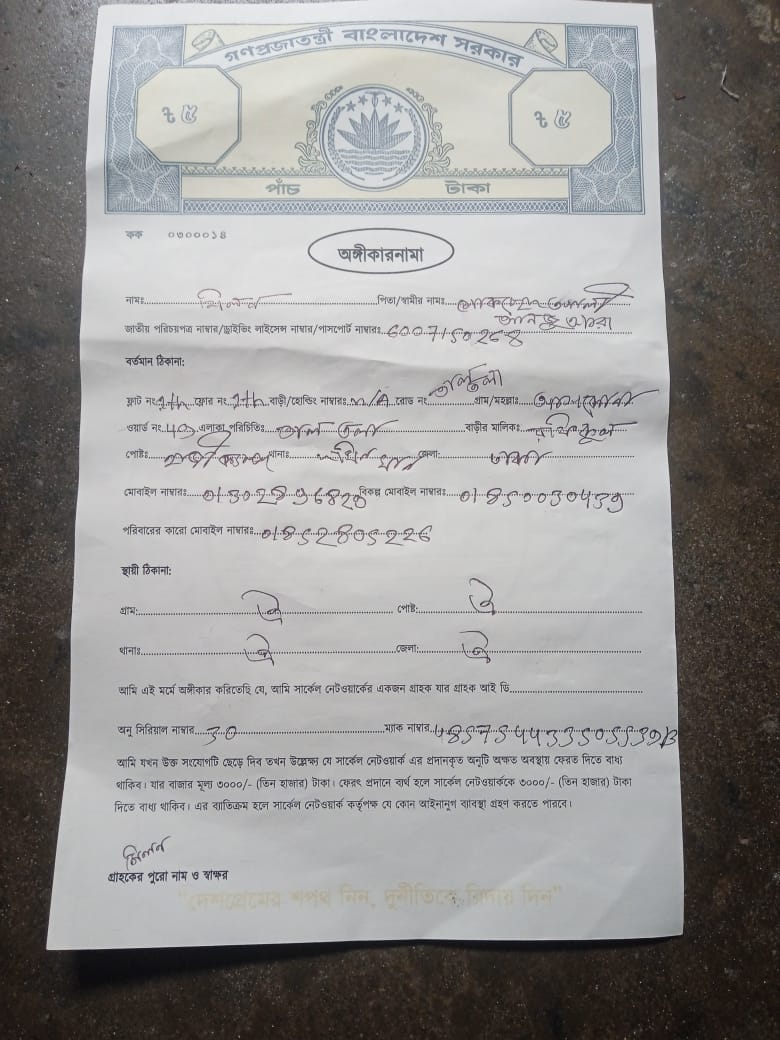 গণপ্রজাতন্ত্রী বাংলাদেশ সরকার
৳ ৫ ৳ ৫
পাঁচ টাকা
কক ০৩০০০১৪
অঙ্গীকারনামা
নামঃ মিলন পিতা/স্বামীর নামঃ
জাতীয় পরিচয়পত্র নাম্বার/ড্রাইভিং লাইসেন্স নাম্বার/পাসপোর্ট নাম্বারঃ 6007150268
বর্তমান ঠিকানা:
ফ্লাট নং ফ্লোর নং বাড়ী/হোল্ডিং নাম্বারঃ N/A রোড নং গ্রাম/মহল্লাঃ
ওয়ার্ড নং 43 এলাকা পরিচিতিঃ তাল তলা বাড়ীর মালিকঃ
পোষ্টঃ থানাঃ জেলা: ঢাকা
মোবাইল নাম্বারঃ বিকল্প মোবাইল নাম্বারঃ 01850030459
পরিবারের কারো মোবাইল নাম্বারঃ 01852805226
স্থায়ী ঠিকানা:
গ্রাম: ঐ পোষ্ট: ঐ
থানাঃ ঐ জেলা: ঐ
আমি এই মর্মে অঙ্গীকার করিতেছি যে, আমি সার্কেল নেটওয়ার্কের একজন গ্রাহক যার গ্রাহক আই ডি
অনু সিরিয়াল নাম্বার 30 ম্যাক নাম্বার
আমি যখন উক্ত সংযোগটি ছেড়ে দিব তখন উল্লেক্ষ্য যে সার্কেল নেটওয়ার্ক এর প্রদানকৃত অনুটি অক্ষত অবস্থায় ফেরত দিতে বাধ্য
থাকিব। যার বাজার মূল্য ৩০০০/- (তিন হাজার) টাকা। ফেরৎ প্রদানে ব্যর্থ হলে সার্কেল নেটওয়ার্ককে ৩০০০/- (তিন হাজার) টাকা
দিতে বাধ্য থাকিব। এর ব্যতিক্রম হলে সার্কেল নেটওয়ার্ক কর্তৃপক্ষ যে কোন আইনানুগ ব্যবস্থা গ্রহণ করতে পারবে।
মিলন
গ্রাহকের পুরো নাম ও স্বাক্ষর
"দেশপ্রেমের শপথ নিন, দুর্নীতিকে বিদায় দিন"